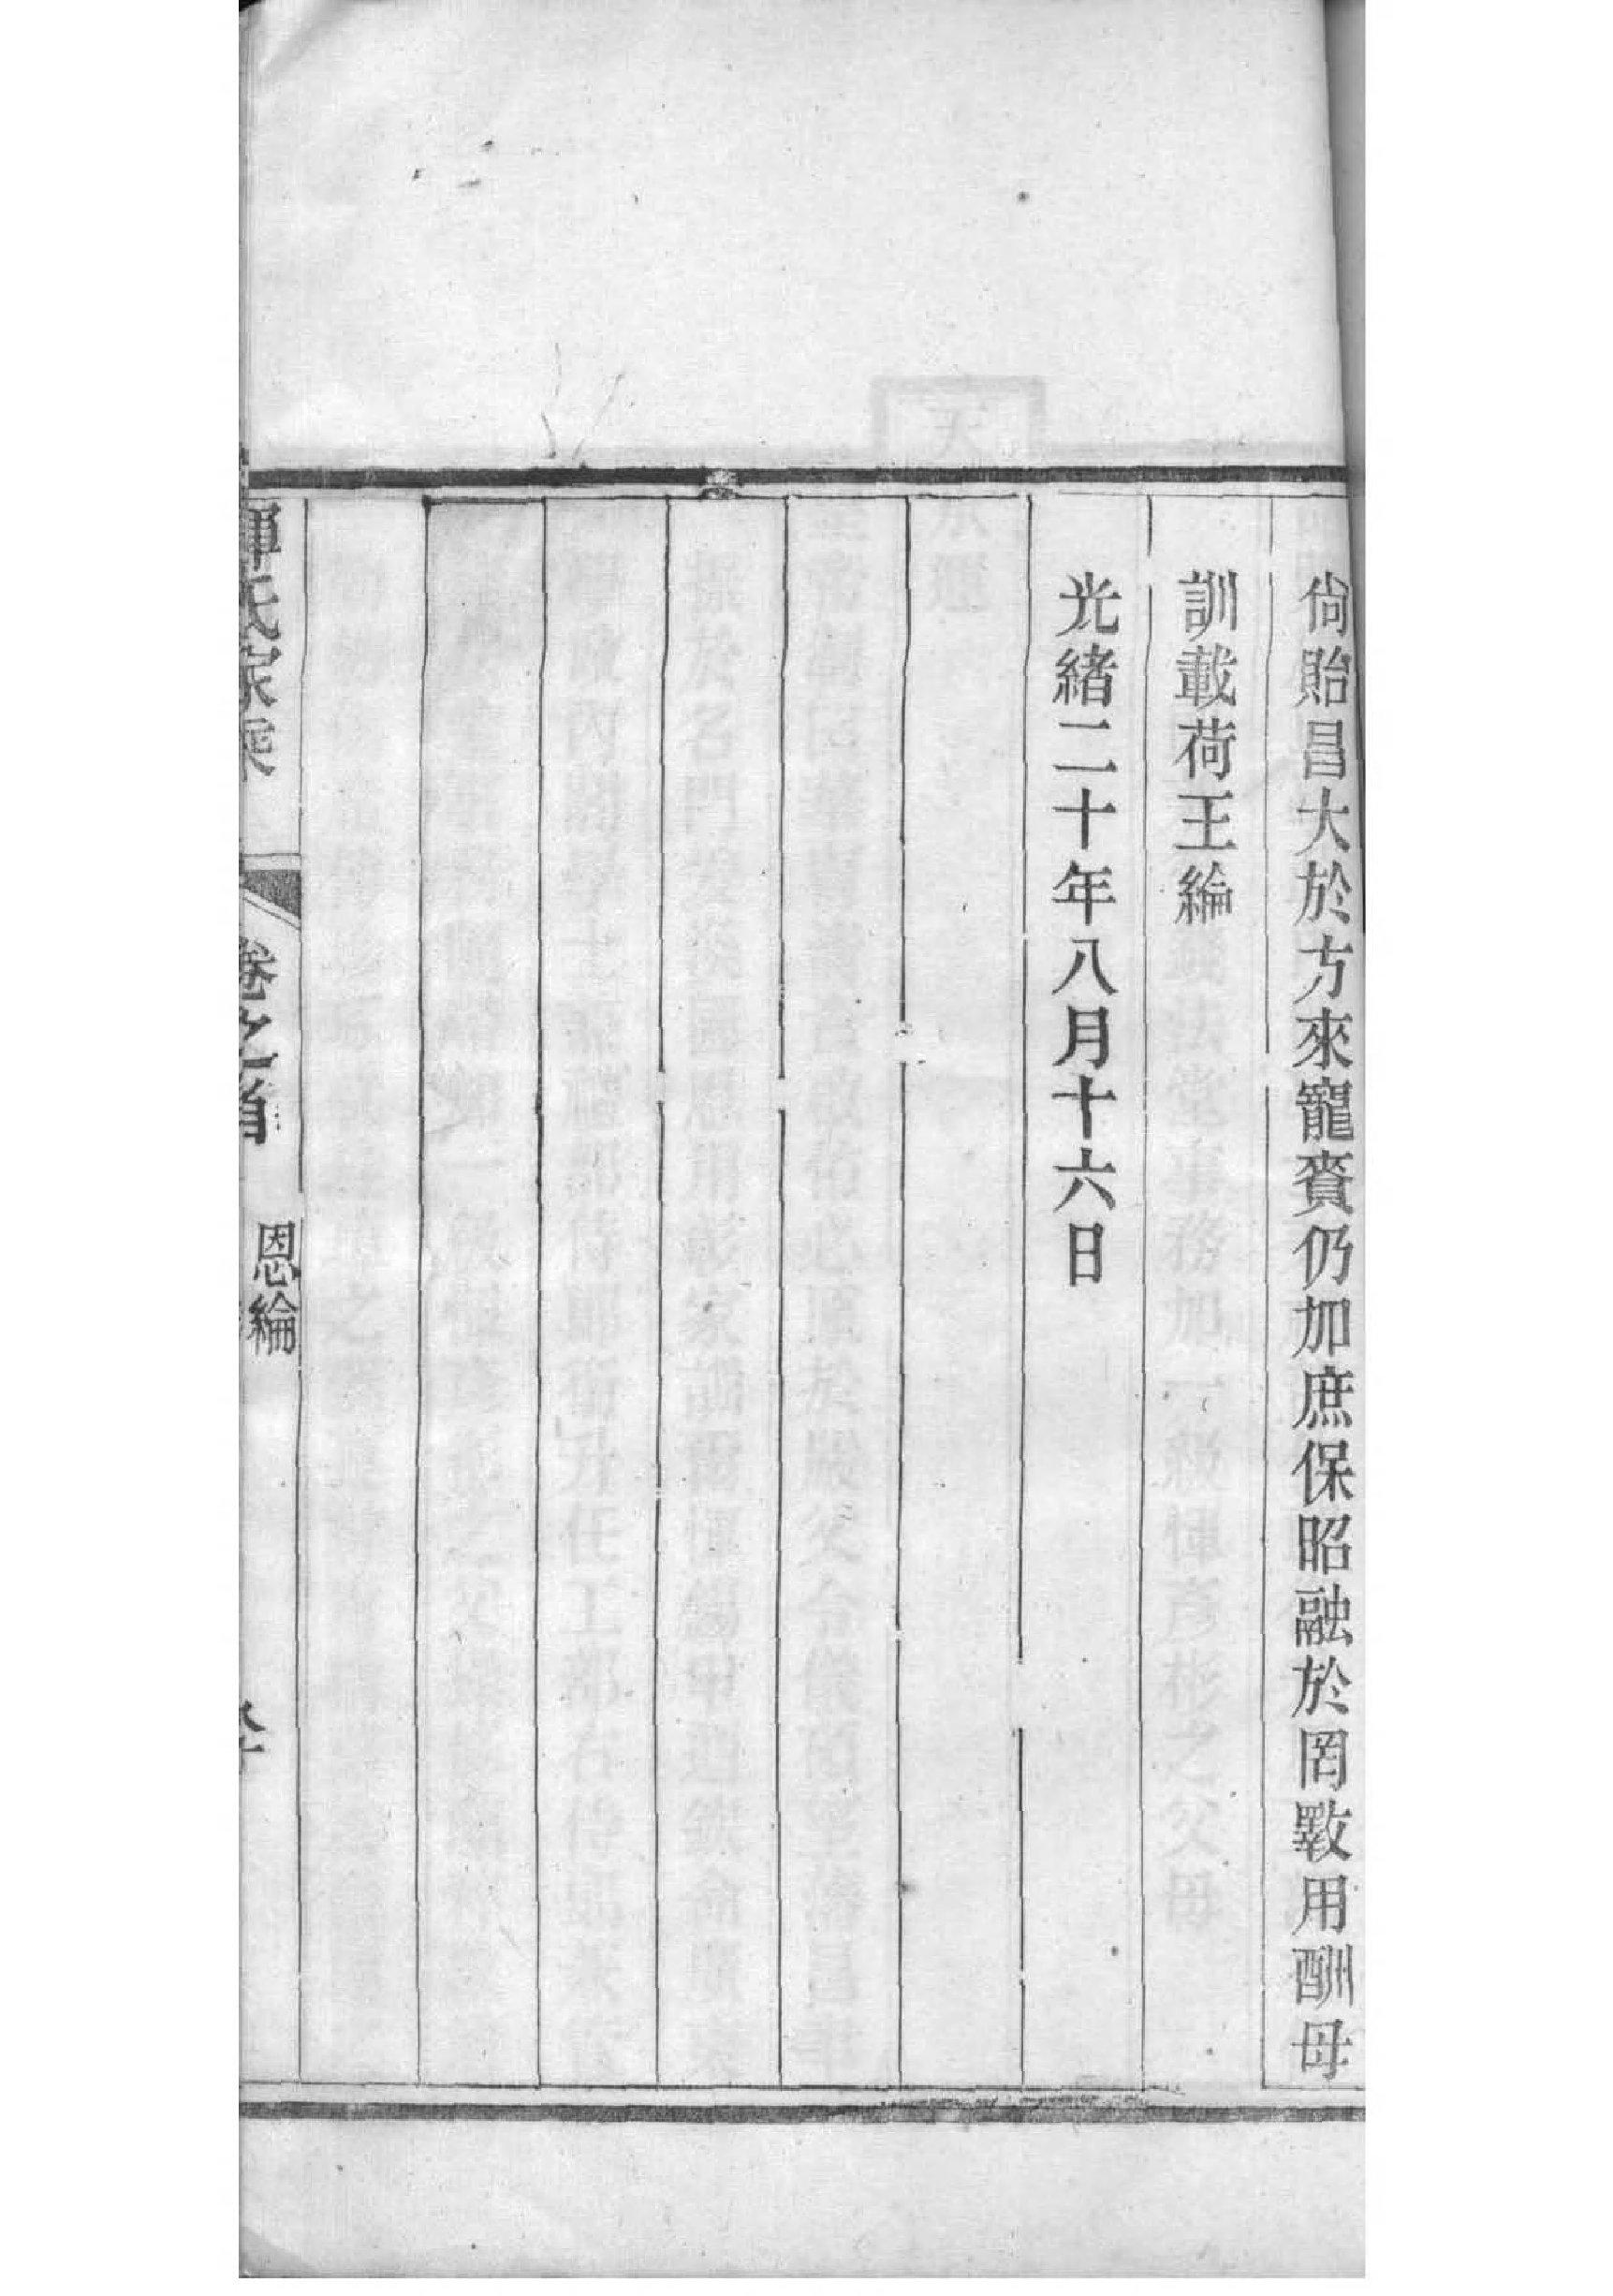 尙貽昌大於方來寵賚仍加庶保昭融於罔斁用酬母
訓載荷王綸
光緒二十年八月十六日
惲氏家乘
卷之首
恩綸